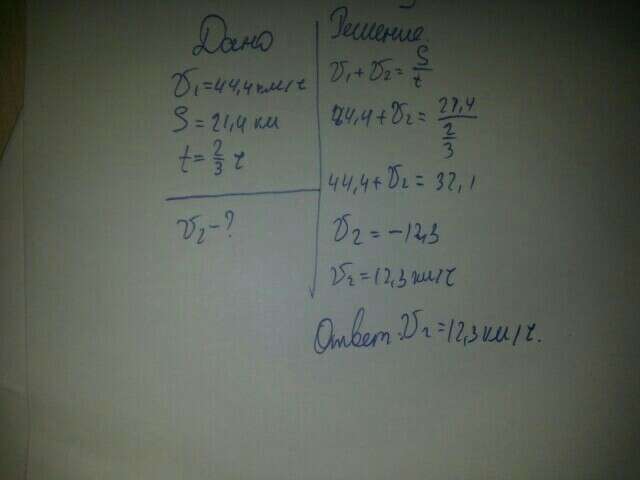 Дано
υ₁=44,4 км/ч
S = 21,4 км
t = 2/3 ч
υ₂-?
Решение.
υ₁+υ₂ = S/t
44,4+υ₂ = 21,4/(2/3)
44,4+υ₂ = 32,1
υ₂ = -12,3
υ₂=12,3 км/ч
Ответ: υ₂=12,3 км/ч.